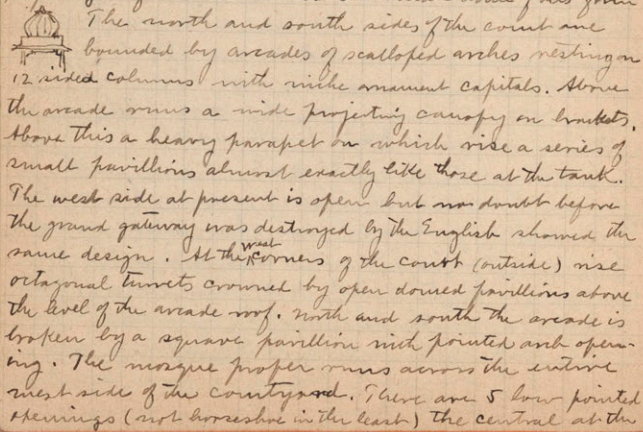 The north and south sides of the court are
bounded by arcades of scalloped arches resting on
12 sided columns with niche ornament capitals. Above
the arcade runs a wide projecting canopy on brackets.
Above this a heavy parapet on which rise a series of
small pavillions almost exactly like those at the tank.
The west side at present is open but no doubt before
the grand gateway was destroyed by the English showed the
same design. At the west corners of the court (outside) rise
octagonal turrets crowned by open domed pavillions above
the level of the arcade roof. North and south the arcade is
broken by a square pavillion with pointed arch open-
ing. The mosque proper runs across the entire
west side of the courtyard. There are 5 low pointed
openings (not horseshoe in the least) the central at the